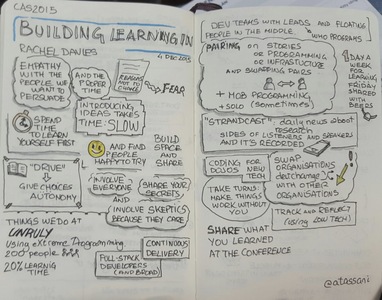 CAS2015
BUILDING LEARNING IN
RACHEL DAVIES
4 DEC 2015
EMPATHY
WITH THE
PEOPLE WE
WANT TO
PERSUADE
AND THE
PROPER
TIME
REASONS
NOT TO
CHANGE
FEAR
INTRODUCING
IDEAS TAKES
TIME: SLOW
SPEND
TIME
TO LEARN
YOURSELF FIRST
AND FIND
PEOPLE
HAPPY TO TRY
BUILD
SPACE
AND
SHARE
"DRIVE"
GIVE CHOICES
AUTONOMY
INVOLVE
EVERYONE
SHARE YOUR
SECRETS
AND
INVOLVE SKEPTICS
BECAUSE THEY CARE
THINGS WE DO AT
UNRULY
Using eXtreme Programming
200 people
20% LEARNIG
TIME
CONTINUOUS
DELIVERY
FULL-STACK
DEVELOPERS
(AND BROAD)
DEV TEAMS WITH LEADS AND FLOATING
PEOPLE IN THE MIDDLE.
WHO PROGRAMS
PAIRING ON STORIES
OR PROGRAMMING
OR INFRASTUCTURE
AND SWAPPING PAIRS
+ MOB PROGRAMMING
+ SOLO (sometimes)
1 DAY A
WEEK
FOR
LEARNING
FRIDAY
STARRED
WITH
BEERS
"STRANDCAST" daily news about
research
SIDES OF LISTENERS AND SPEAKERS
AND IT'S RECORDED
CODING FOR NEW
DOJOS TECH
SWAP
ORGANISATIONS
devXchange
WITH OTHER
ORGANISATIONS
TAKE TURNS
MAKE THINGS
WORK WITHOUT
YOU
TRACK AND REFLECT
(using LOW TECH)
SHARE WHAT
YOU LEARNED
AT THE CONFERENCE
@atassani